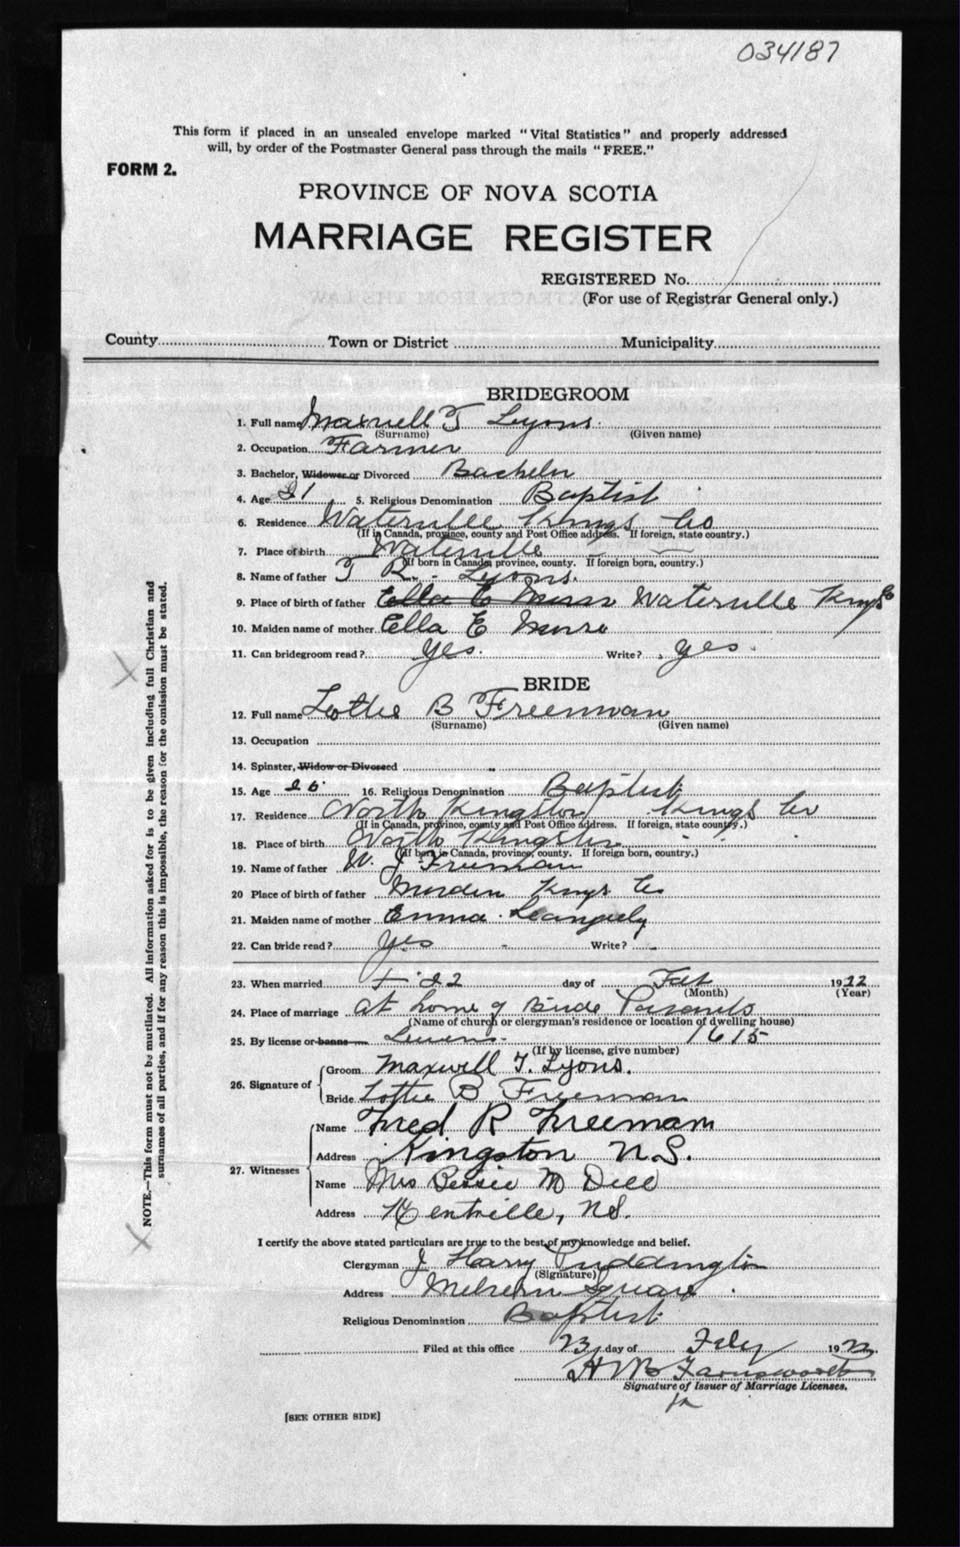 034187
This form if placed in an unsealed envelope marked "Vital Statistics" and properly addressed
will, by order of the Postmaster General pass through the mails "FREE."
FORM 2.
PROVINCE OF NOVA SCOTIA
MARRIAGE REGISTER
REGISTERED No.
(For use of Registrar General only.)
County Town or District Municipality
BRIDEGROOM
1. Full name Maxwell T Lyons
(Surname) (Given name)
2. Occupation Farmer
3. Bachelor, Widower or Divorced Bachelor
4. Age 21 5. Religious Denomination Baptist
6. Residence Waterville Kings Co
(If in Canada, province, county and Post Office address. If foreign, state country.)
7. Place of birth Waterville
(If born in Canada, province, county. If foreign born, country.)
8. Name of father T R. Lyons.
9. Place of birth of father Ella E Munro Waterville Kings Co
10. Maiden name of mother Ella E Munro
11. Can bridegroom read? Yes. Write? yes.
BRIDE
12. Full name Lottie B Freeman
(Surname) (Given name)
13. Occupation
14. Spinster, Widow or Divorced "
15. Age 26 16. Religious Denomination Baptist
17. Residence North Kingston Kings Co
(If in Canada, province, county and Post Office address. If foreign, state country.)
18. Place of birth North Kingston
(If born in Canada, province, county. If foreign born, country.)
19. Name of father W. J Freeman
20 Place of birth of father Morden Kings Co
21. Maiden name of mother Emma
22. Can bride read? Yes " Write?
23. When married 22 day of Feb 1922
(Month) (Year)
24. Place of marriage at home of Bride Parents
(Name of church or clergyman's residence or location of dwelling house)
25. By license or banns 1615
(If by license, give number)
26. Signature of Groom Maxwell T. Lyons.
Bride Lottie B Freeman
27. Witnesses Name Fred R Freeman
Address Kingston N.S.
Name Mrs Bessie M Dill
Address Kentville, N.S.
I certify the above stated particulars are true to the best of my knowledge and belief.
Clergyman J Harry Puddington
(Signature)
Address Melvern Square
Religious Denomination Baptist
Filed at this office 23 day of Feby 1922
H W Farnsworth
Signature of Issuer of Marriage Licenses.
[SEE OTHER SIDE]
NOTE.—This form must not be mutilated. All information asked for is to be given including full Christian and
surnames of all parties, and if for any reason this is impossible, the reason for the omission must be stated.